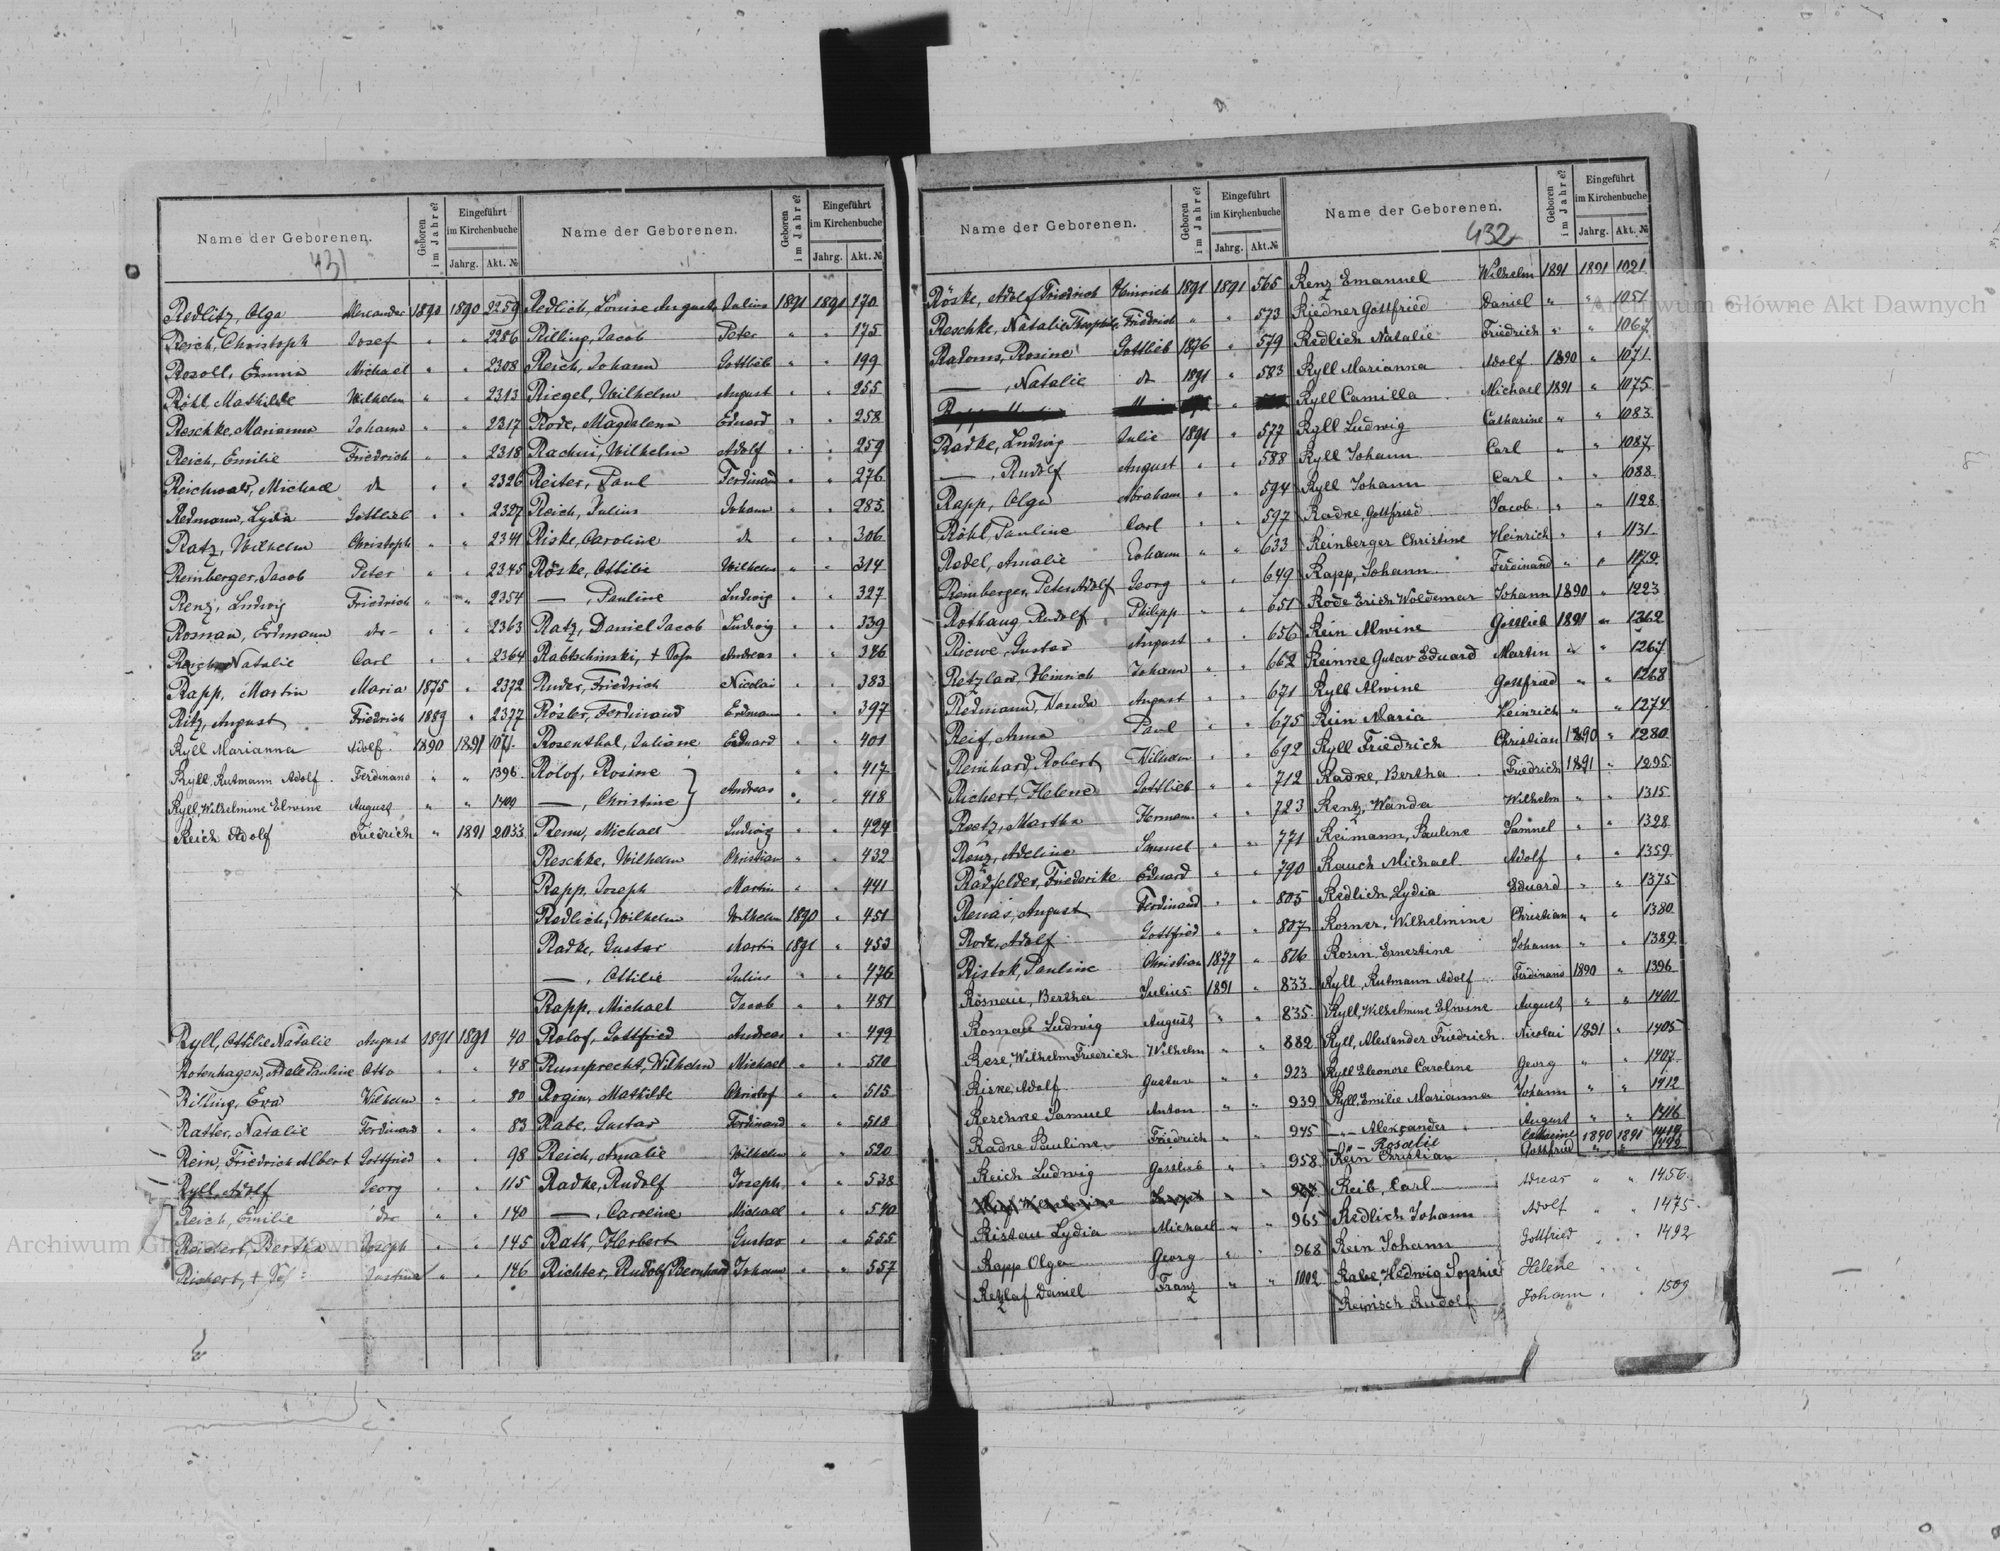 Name der Geborenen. Geboren im Jahre? Eingeführt im Kirchenbuche Jahrg. Akt. №
431
Redlitz, Olga Alexander 1890 1890 2259
Reich, Christoph Josef " " 2286
Rosoll, Emma Michael " " 2308
Röhl Mathilde Wilhelm " " 2313
Reschke, Marianna Johann " " 2317
Reich, Emilie Friedrich " " 2318
Reichwald, Michael dto " " 2326
Redmann, Lydia Gottlieb " " 2327
Ratz, Wilhelm Christoph " " 2341
Reinberger, Jacob Peter " " 2345
Renz, Ludwig Friedrich " " 2354
Rosnau, Erdmann dto " " 2363
Reich Natalie Carl " " 2364
Rapp, Martin Maria 1875 " 2372
Ritz, August Friedrich 1889 " 2377
Ryll Marianna Adolf 1890 1891 1071
Ryll, Rutmann Adolf Ferdinand " " 1396
Ryll, Wilhelmine Elwine August " " 1400
Reich Adolf Friedrich " 1891 2033
Ryll, Ottilie Natalie August 1891 1891 40
Rotenhagen, Adele Pauline Otto " " 48
Rilling, Eva Wilhelm " " 80
Ratter, Natalie Ferdinand " " 83
Rein, Friedrich Albert Gottfried " " 98
Ryll, Adolf Georg " " 115
Reich, Emilie dto " " 140
Reichert, Bertha Joseph " " 145
Richert, + Justina " " 146
Name der Geborenen. Geboren im Jahre? Eingeführt im Kirchenbuche Jahrg. Akt. №
Redlich, Louise Auguste Julius 1891 1891 170
Rilling, Jacob Peter " " 175
Reich, Johann Gottlieb " " 199
Riegel, Wilhelm August " " 255
Rode, Magdalena Eduard " " 258
Rachui, Wilhelm Adolf " " 259
Reiter, Paul Ferdinand " " 276
Reich, Julius Johann " " 285
Riske, Caroline dto " " 306
Röske, Ottilie Wilhelm " " 314
—, Pauline Ludwig " " 327
Ratz, Daniel Jacob Ludwig " " 339
Rabtschinski, + Andreas " " 346
Ruder, Friedrich Nicolai " " 383
Rösler, Ferdinand Erdmann " " 397
Rosenthal, Juliane Eduard " " 401
Rolof, Rosine " " 417
—, Christine } Andreas " " 418
Renn, Michael Ludwig " " 424
Reschke, Wilhelm Christian " " 432
Rapp, Joseph Martin " " 441
Redlich, Wilhelm Wilhelm 1890 " 451
Radke, Gustav Martin 1891 " 453
—, Ottilie Julius " " 476
Rapp, Michael Jacob " " 481
Rolof, Gottfried Andreas " " 499
Rumprecht, Wilhelm Michael " " 510
Rogin, Mathilde Christof " " 515
Rabe, Gustav Ferdinand " " 518
Reich, Amalie Wilhelm " " 520
Radke, Rudolf Joseph " " 538
—, Caroline Michael " " 540
Rath, Herbert Gustav " " 555
Richter, Rudolf Bernhard Johann " " 557
Name der Geborenen. Geboren im Jahre? Eingeführt im Kirchenbuche Jahrg. Akt. №
Röske, Adolf Friedrich Heinrich 1891 1891 565
Reschke, Natalie Theophile Friedrich " " 573
Radoms, Rosine Gottlieb 1876 " 579
—, Natalie dto 1891 " 583
Radke, Ludwig Julie 1891 " 577
—, Rudolf August " " 588
Rapp, Olga Abraham " " 594
Röhl, Pauline Carl " " 597
Redel, Amalie Johann " " 633
Reinberger, Peter Adolf Georg " " 649
Rothaug Rudolf Philipp " " 651
Riewe, Gustav August " " 656
Retzlaw, Heinrich Johann " " 662
Redmann, Wanda August " " 671
Reif, Anna Paul " " 675
Reinhard, Robert Wilhelm " " 692
Richert, Helene Gottlieb " " 712
Reetz, Martha Hermann " " 723
Renz, Adeline Samuel " " 771
Radfelder, Friederike Eduard " " 790
Renas, August Ferdinand " " 805
Rode, Adolf Gottfried " " 807
Ristok, Pauline Christian 1877 " 816
Rosnau, Bertha Julius 1891 " 833
Rosnau Ludwig August " " 835
Rese, Wilhelm Friedrich Wilhelm " " 882
Riske, Adolf Gustav " " 923
Reschke Samuel Anton " " 939
Radke Pauline Friedrich " " 945
Reich Ludwig Gottlieb " " 958
Ristau Lydia Michael " " 965
Rapp Olga Georg " " 968
Retzlaf Daniel Franz " " 1002
Name der Geborenen. Geboren im Jahre? Eingeführt im Kirchenbuche Jahrg. Akt. №
432
Renz Emanuel Wilhelm 1891 1891 1021
Riedner Gottfried Daniel " " 1051
Redlich Natalie Friedrich " " 1067
Ryll Marianna Adolf 1890 " 1071
Ryll Camilla Michael 1891 " 1075
Ryll Ludwig Catharine " " 1083
Ryll Johann Carl " " 1087
Ryll Johann Carl " " 1088
Radke, Gottfried Jacob " " 1128
Reinberger Christine Heinrich " " 1131
Rapp, Johann Ferdinand " " 1179
Rode Erich Woldemar Johann 1890 " 1223
Rein Alwine Gottlieb 1891 " 1262
Reinke Gustav Eduard Martin " " 1267
Ryll Alwine Gottfried " " 1268
Rein Maria Heinrich " " 1274
Ryll Friedrich Christian 1890 " 1280
Radke, Bertha Friedrich 1891 " 1295
Renz, Wanda Wilhelm " " 1315
Reimann, Pauline Samuel " " 1328
Rauch Michael Adolf " " 1359
Redlich, Lydia Eduard " " 1375
Rosner, Wilhelmine Christian " " 1380
Rosin Ernestine Johann " " 1389
Ryll, Rutmann Adolf Ferdinand 1890 " 1396
Ryll, Wilhelmine Elwine August " " 1400
Ryll, Alexander Friedrich Nicolai 1891 " 1405
Ryll Eleonore Caroline Georg " " 1407
Ryll, Emilie Marianna Johann " " 1412
— Alexander August " " 1416
— Rosalie Catharine 1890 1891 1414
Rein Christian Gottfried " " 1422
Reib, Carl Andreas " " 1456
Redlich Johann Adolf " " 1475
Rein Johann Gottfried " " 1492
Rabe, Hedwig Sophie Helene " "
Reinsch Rudolf Johann " " 1509
Archiwum Główne Akt Dawnych
Archiwum Główne Akt Dawnych